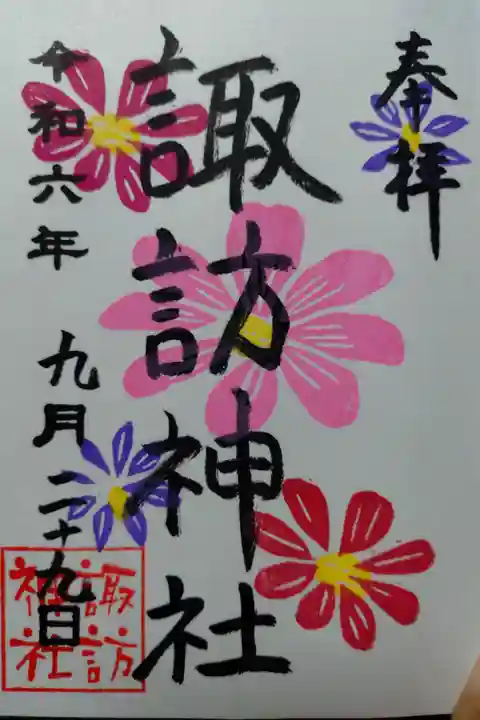 奉拝
諏訪神社
令和六年 九月二十九日
諏訪
神社